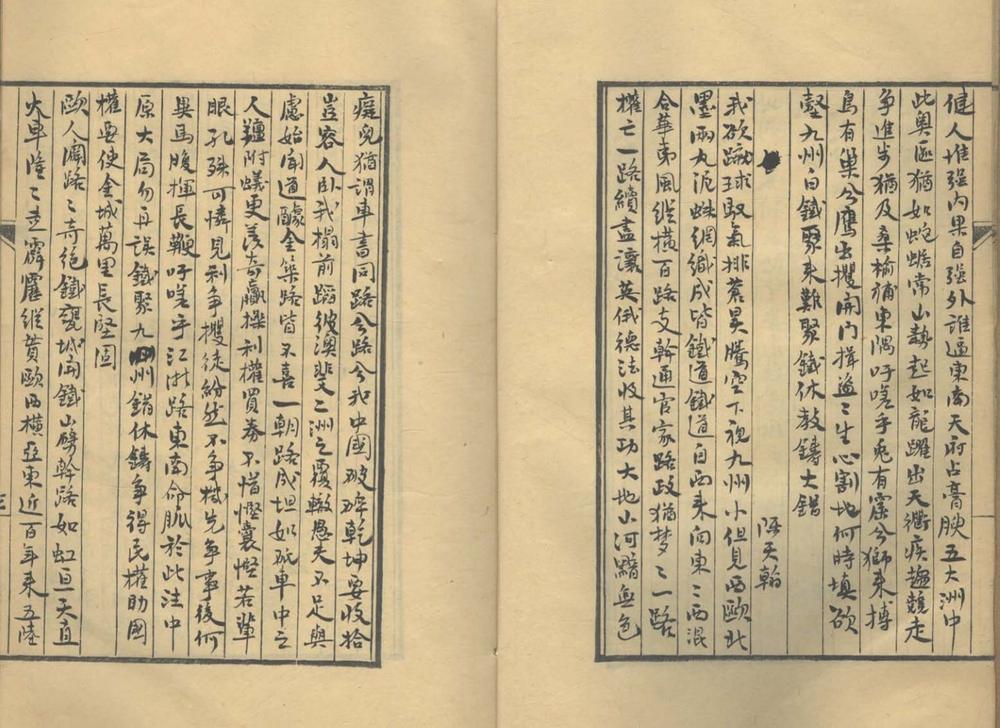 健人堆强内果自强外誰逼東南天府占膏腴五大洲中
此奥區猶如蜿蟺常山勢起如龍躍出天衢疾趨競走
争進步猶及桑榆補東隅吁嗟乎兎有窟兮獅來搏
鳥有巢兮鷹出攫開門揖盗盗生心割地何時填欲
壑九州白鐵聚來難聚鐵休教鑄大錯
陈天翰
我欲蹴球馭氣排蒼昊騰空下視九州小但見西歐北
墨兩丸泥蛛網織成皆鐵道鐵道自西来向東東西混
合華夷風縱横百路支幹通官家路政猶梦梦一路
權亡一路續盡讓英俄德法收其功大地山河黯無色
癡兒猶謂車書同路兮路兮我中國破碎乾坤要收拾
豈容人卧我榻前蹈彼澳斐二洲之覆轍愚夫不足與
慮始闻道醵金築路皆不喜一朝路成坦如砥車中之
人羶附蟻更羡奇贏操利權買券不惜慳囊慳若輩
眼孔殊可憐見利争攫徒紛然不争機先争事後何
異馬腹揮長鞭吁嗟乎江浙路東南命脈於此注中
原大局勿再誤鐵聚九州錯休鑄争得民權助國
權要使金城萬里長堅固
歐人闢路路奇绝鐵甕城開鐵山劈幹路如虹亘天直
火車隆隆走霹靂縱貫歐西横亞東近百年来五陸
三